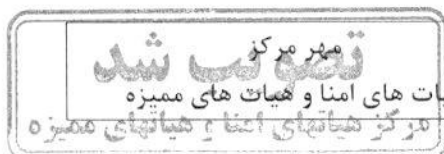 مهر مرکز
تصویب شد
یات های امنا و هیات های ممیزه
مرکز هیاتهای امنا و هیاتهای ممیزه